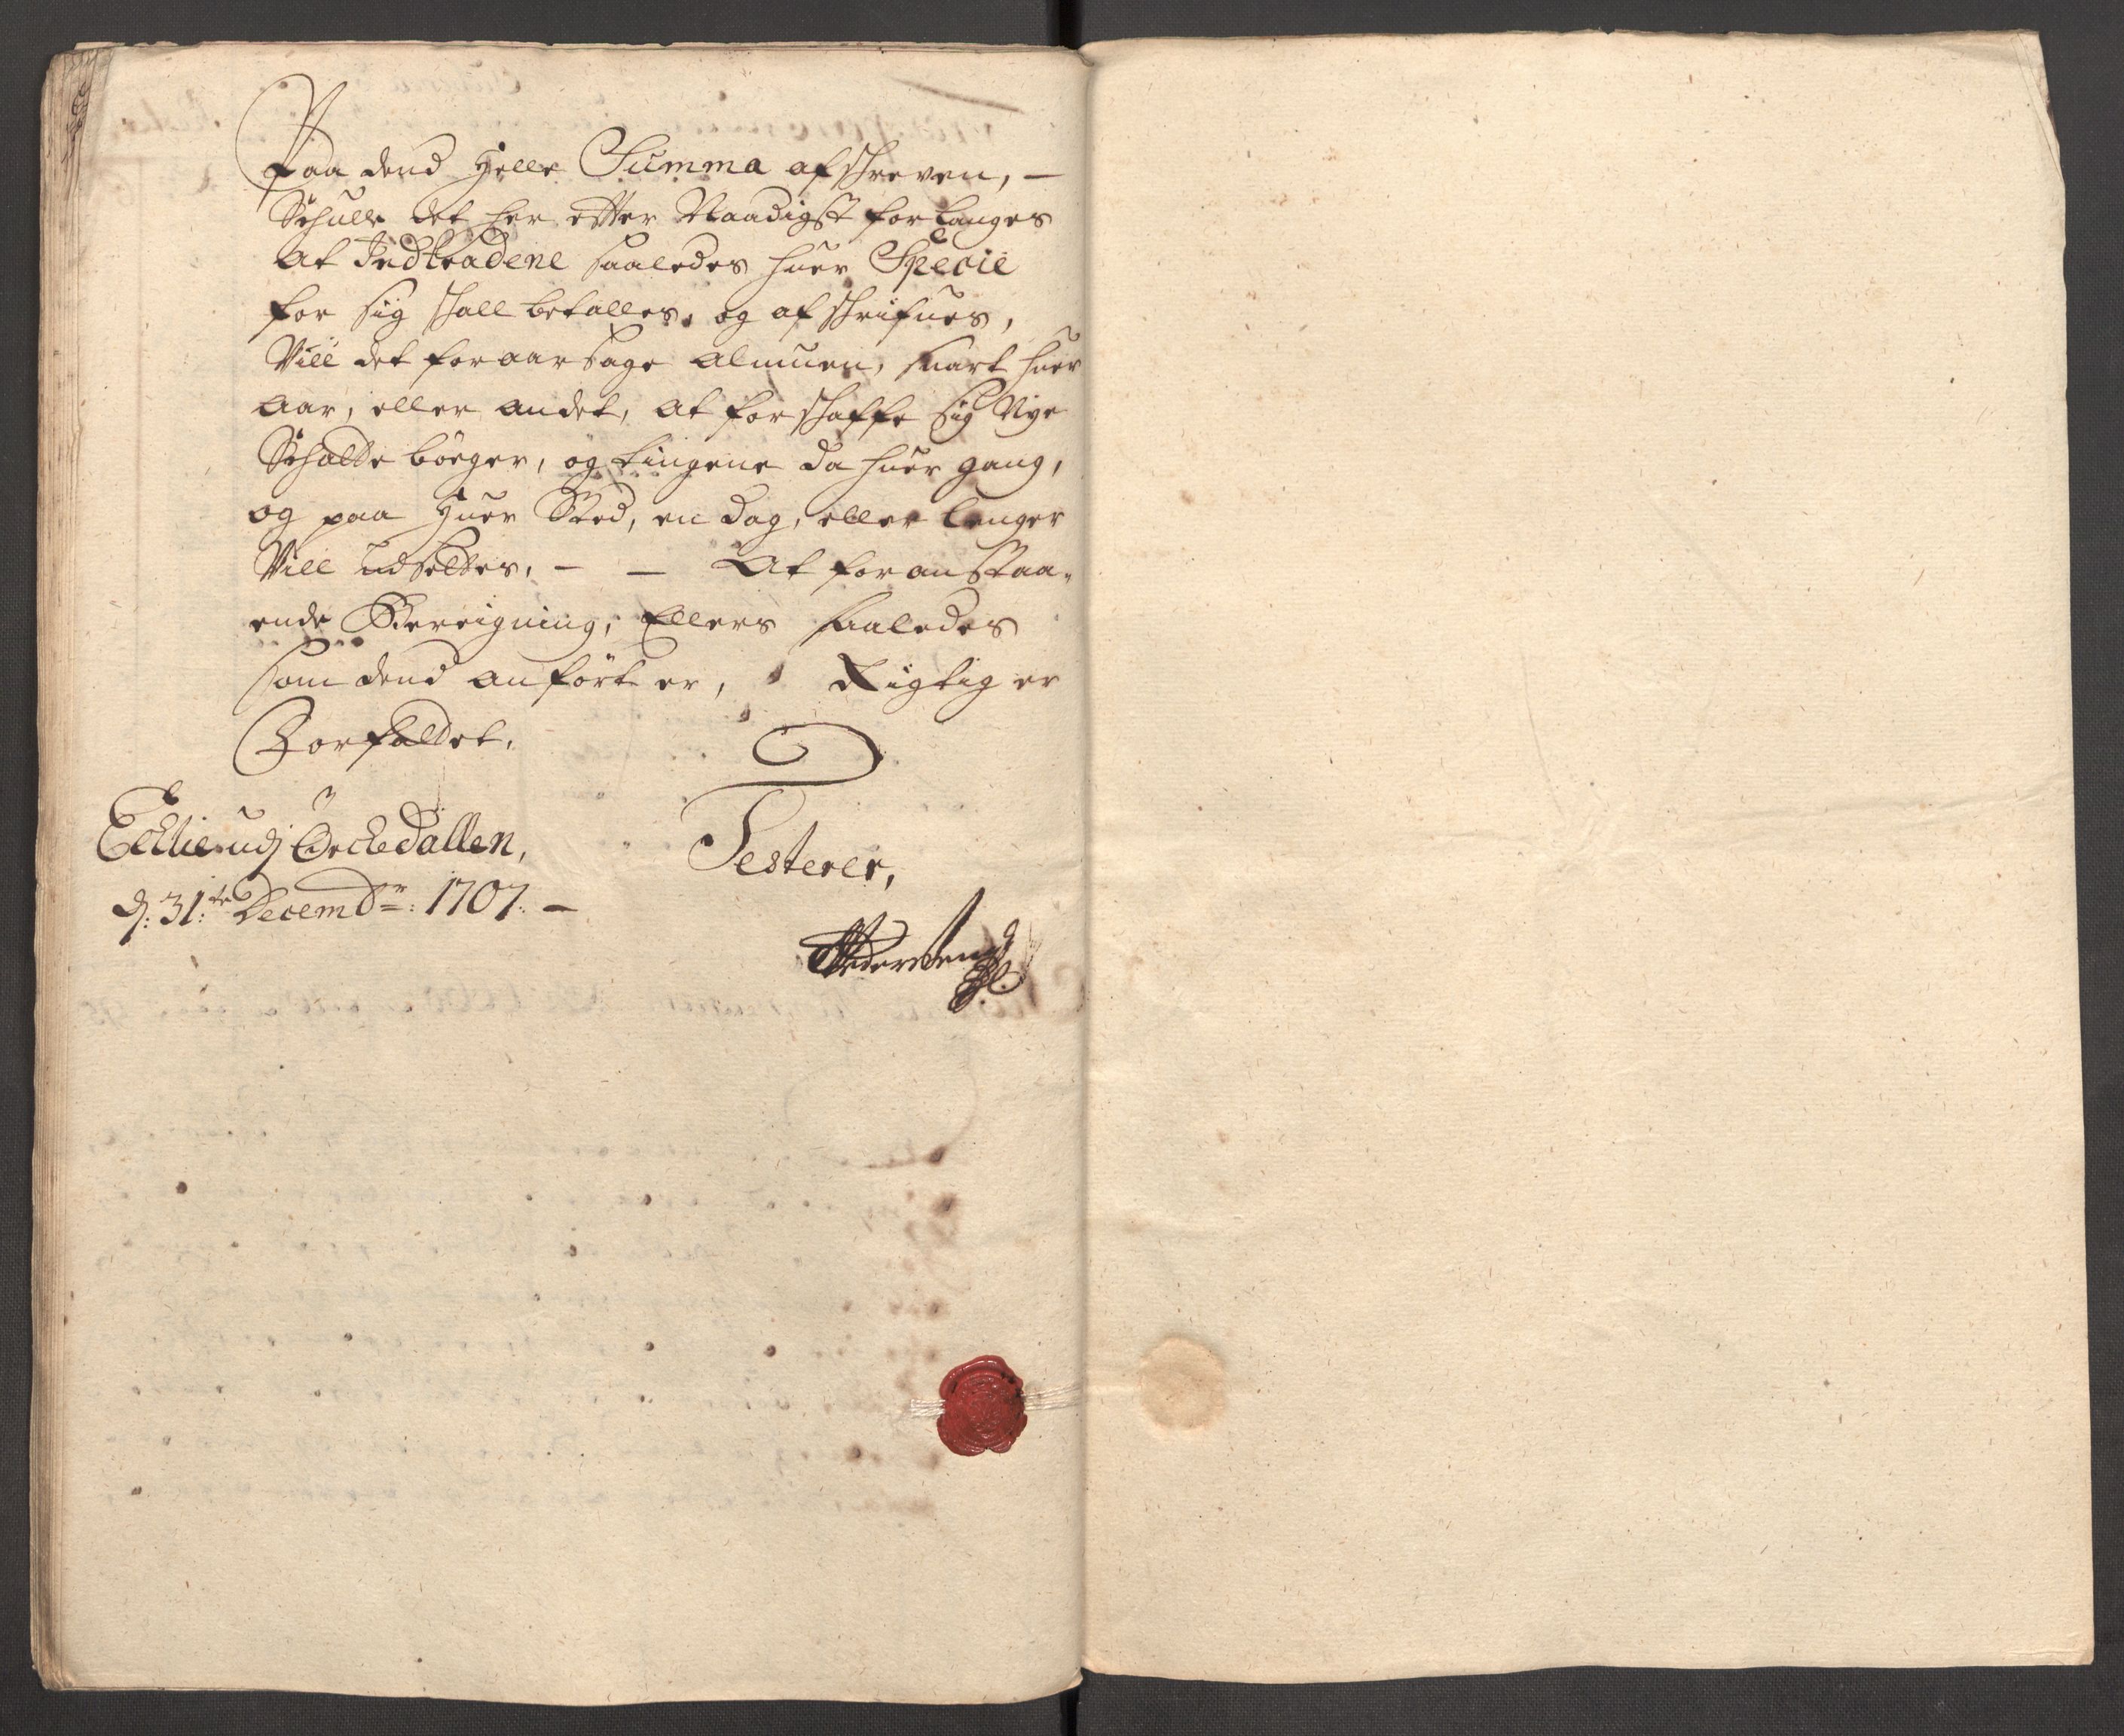 Paa dend Helle Summa afskreven, –
Schulle det her efter Naadigst forlanges
At Indtradene saaledes huer Specie
for sig skall betalles, og afskrifues,
Vill det foraarsage Almuen, snart huer
Aar, eller andet, at forskaffe sig Nye
Schatte böeger, og tingene da huer gang,
og paa Huer Sted, en dag, eller lenger
Vill udsettes, – – At foranstaa-
ende Bereigning, Ellers saaledes
som dend anfört er, Rigtig er
Forfattet,
Ecklie udj Orckedallen, Testerer,
d: 31:te Decembr: 1707. –
Pedersen